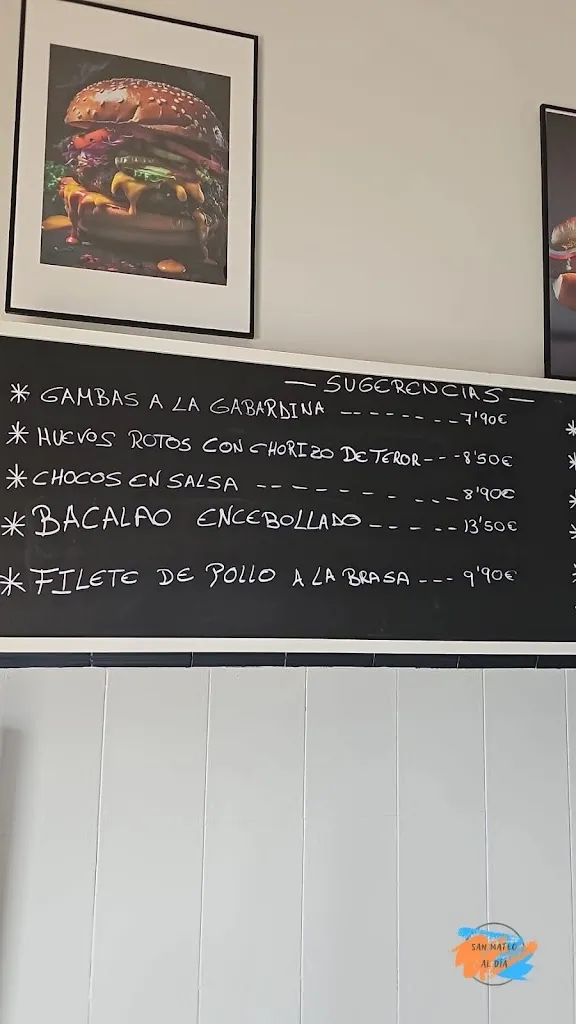 — SUGERENCIAS —
* GAMBAS A LA GABARDINA -------- 7'90€
* HUEVOS ROTOS CON CHORIZO DE TEROR --- 8'50€
* CHOCOS EN SALSA ---------- 8'90€
* BACALAO ENCEBOLLADO ----- 13'50€
* FILETE DE POLLO A LA BRASA --- 9'90€
SAN MATEO
AL DÍA